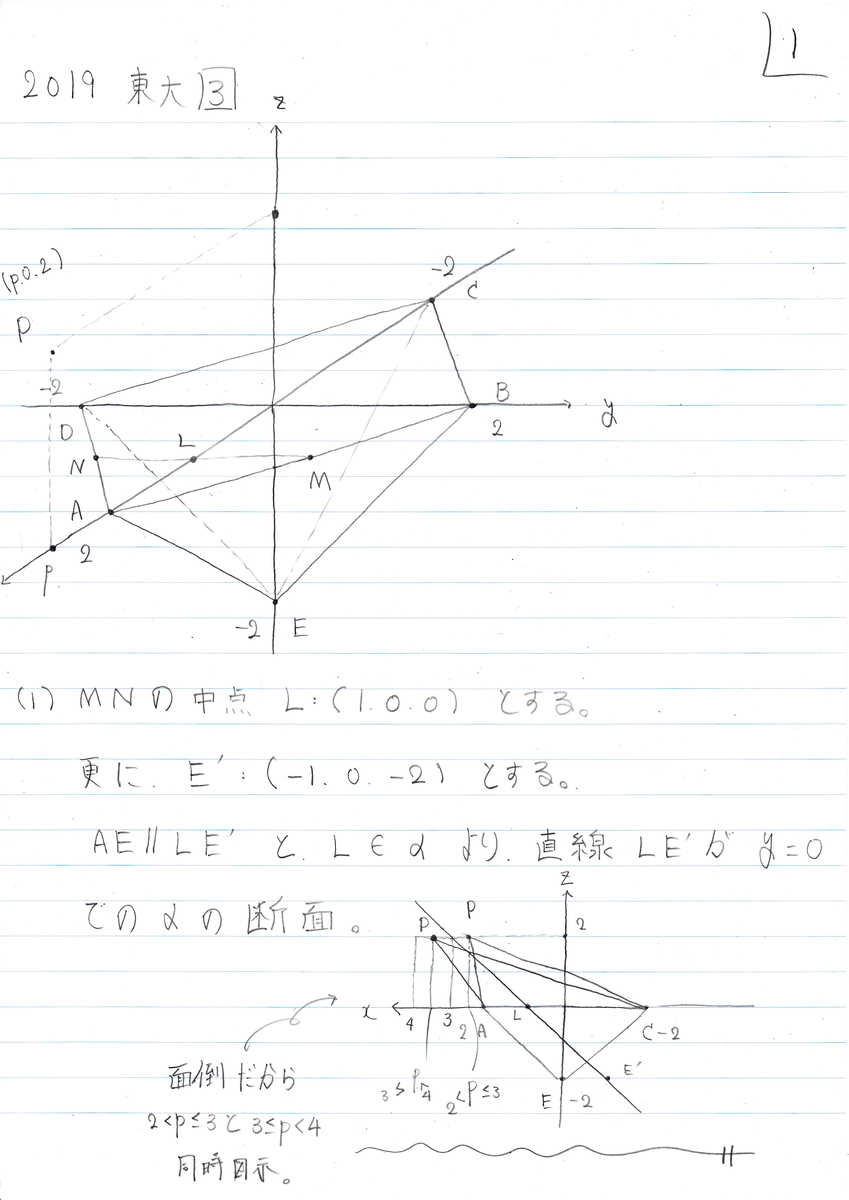 1
2019 東大 3
z
(p.0.2)
P
-2
C
-2
D
B
y
2
N
L
M
A
2
p
-2
E
(1) MNの中点 L:(1.0.0) とする。
更に. E′:(-1.0.-2) とする。
AE∥LE′ と. L∈α より. 直線 LE′が y=0
でのαの断面。
z
P
P
2
x
4
3
2
A
L
C
-2
E′
E
-2
2<p≤3
面倒だから
2<p≤3と3≤p<4
同時図示。